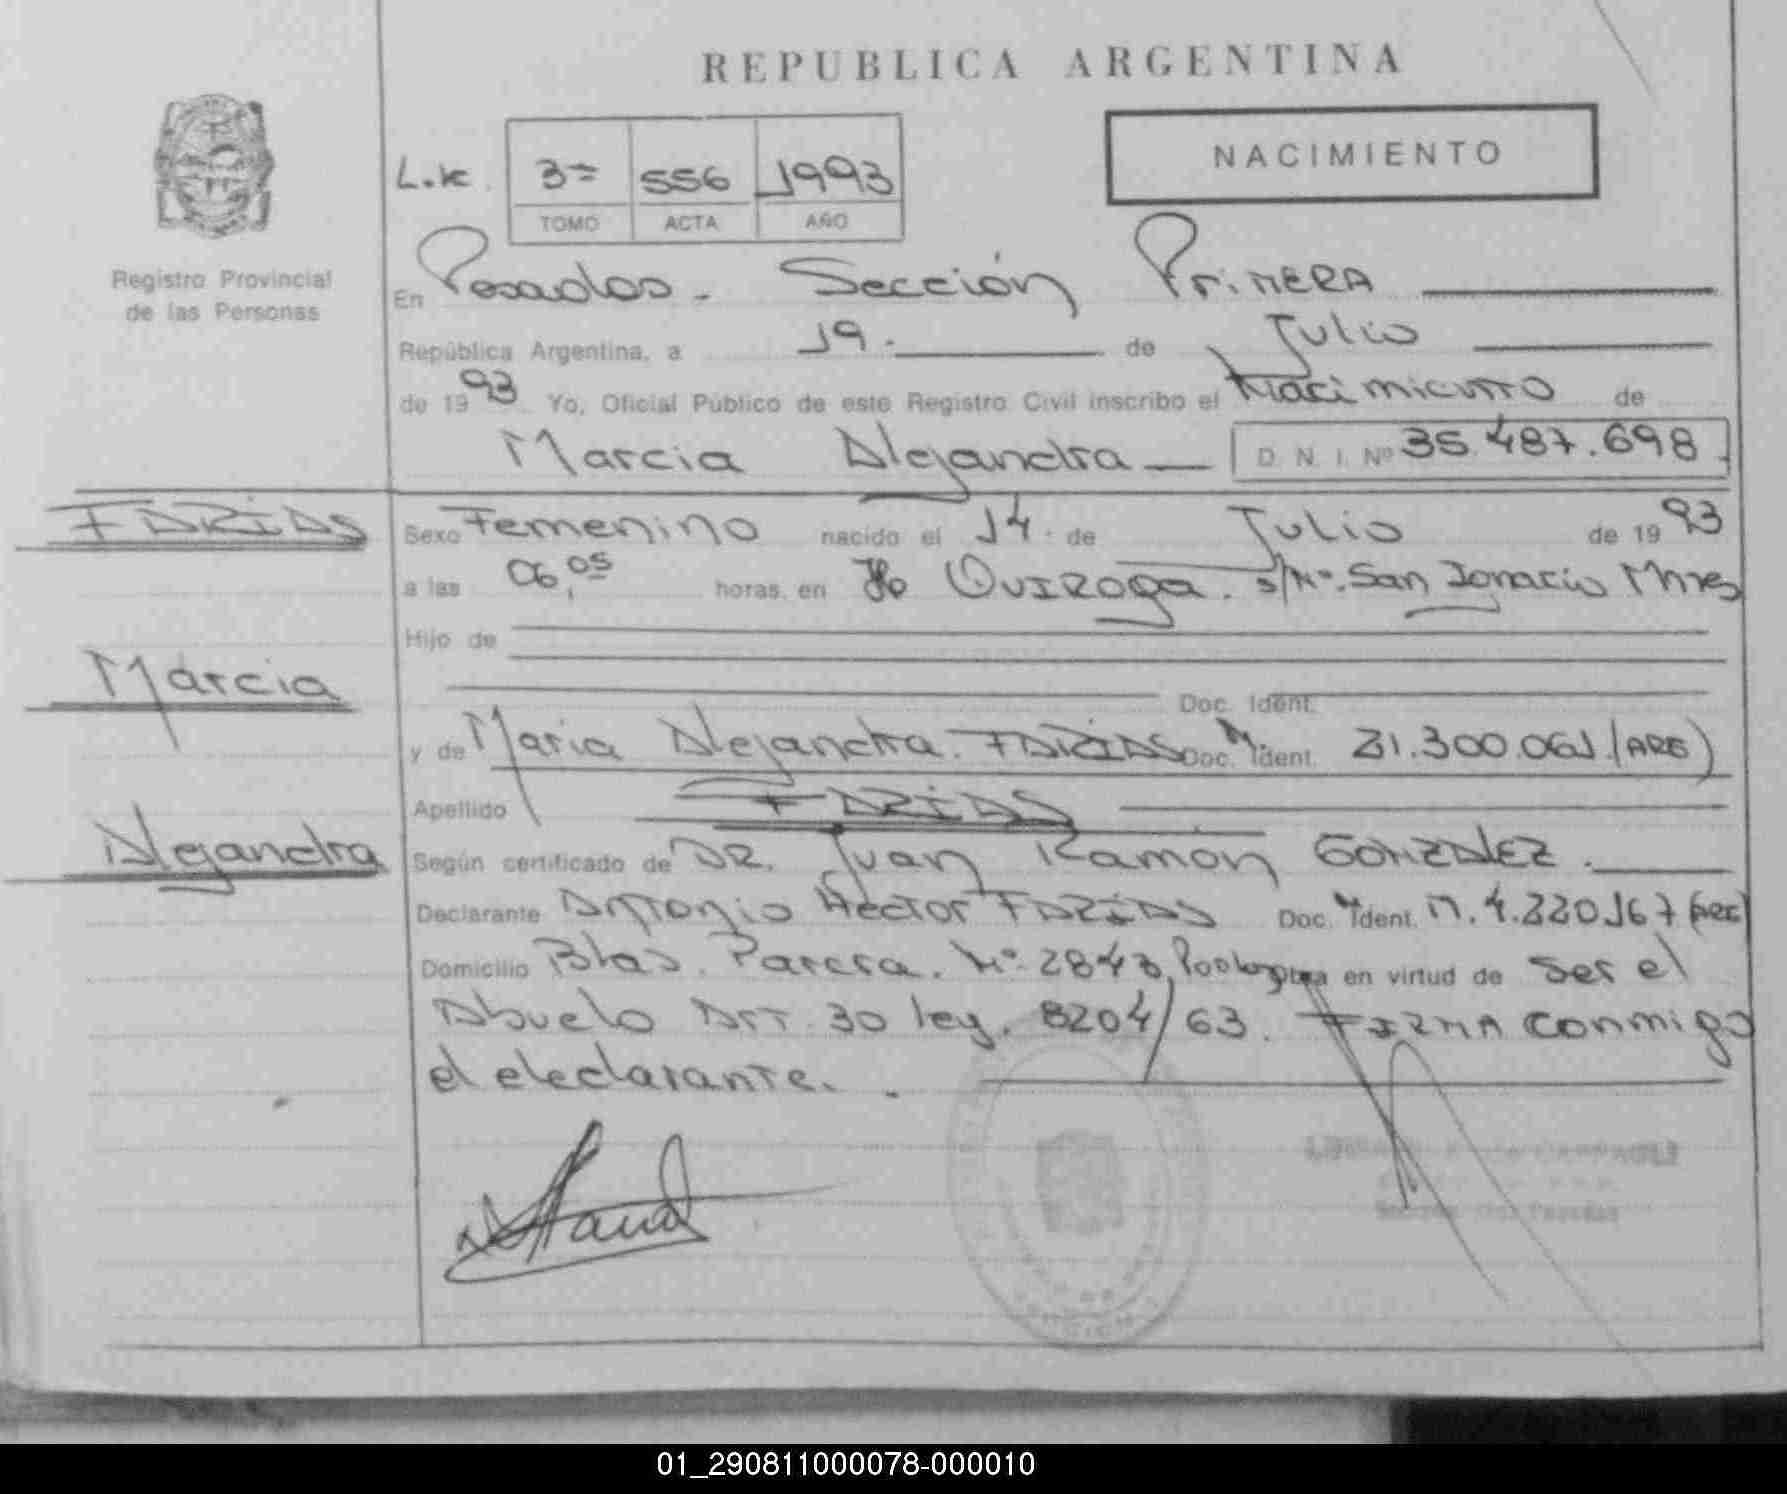 REPUBLICA ARGENTINA
NACIMIENTO
L.K. 3= 556 1993
TOMO ACTA AÑO
Registro Provincial
de las Personas
En Posadas - Sección Primera
República Argentina, a 19. de Julio
de 1993 Yo, Oficial Público de este Registro Civil inscribo el Nacimiento de
Marcia Alejandra D. N. I. Nº 35.487.698
FARIAS
Sexo Femenino nacido el 14 de Julio de 1993
a las 06,05 horas, en Quiroga. s/Nº. San Ignacio Mnes
Hijo de
Marcia
Doc. Ident.
y de Maria Alejandra. FARIAS Doc. Ident. 21.300.061.(ARG)
Apellido FARIAS
Alejandra
Según certificado de DR. Juan Ramon GONZALEZ.
Declarante Antonio Hector FARIAS Doc. Ident. M. 4.220.167 (ARG)
Domicilio Blas. Parera. Nº 2843, en virtud de ser el
Abuelo Art. 30 ley. 8204/63. FIRMA conmigo
el declarante.
01_290811000078-000010